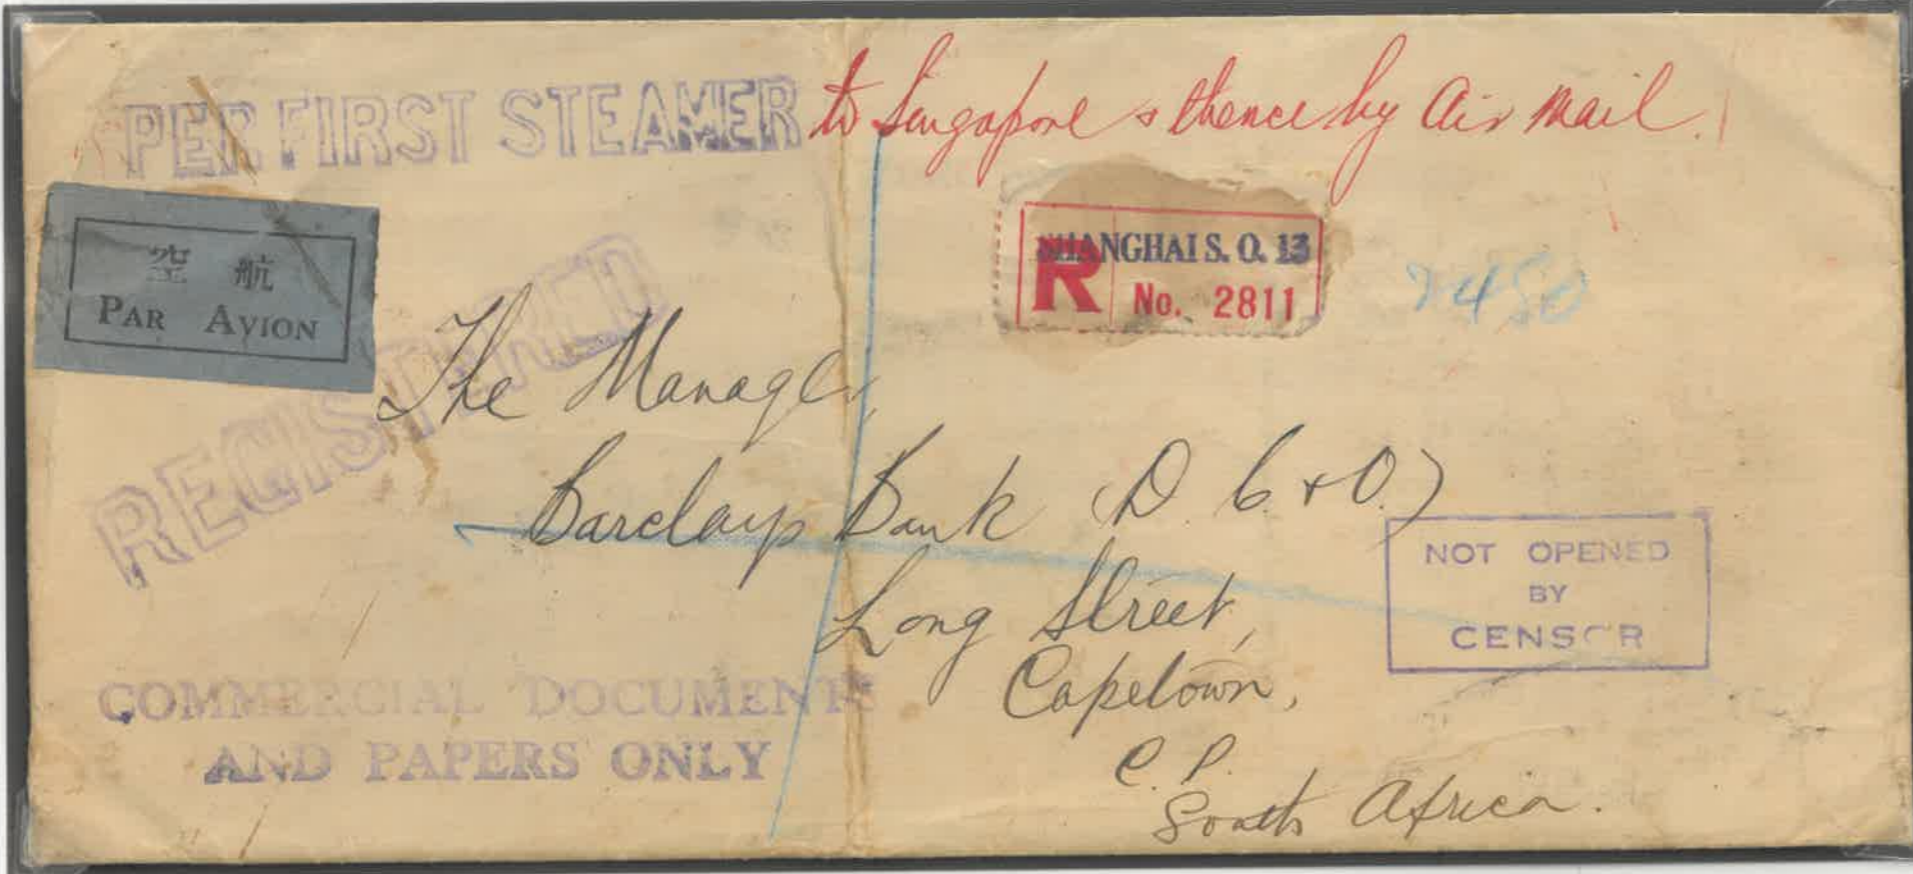 PER FIRST STEAMER to Singapore & thence by Air Mail.
空 航
PAR AVION
REGISTERED
SHANGHAI S. O. 13
R No. 2811
2480
The Manager,
Barclays Bank (D. C. & O.)
Long Street,
Capetown,
C. P.
South Africa.
NOT OPENED
BY
CENSOR
COMMERCIAL DOCUMENTS
AND PAPERS ONLY